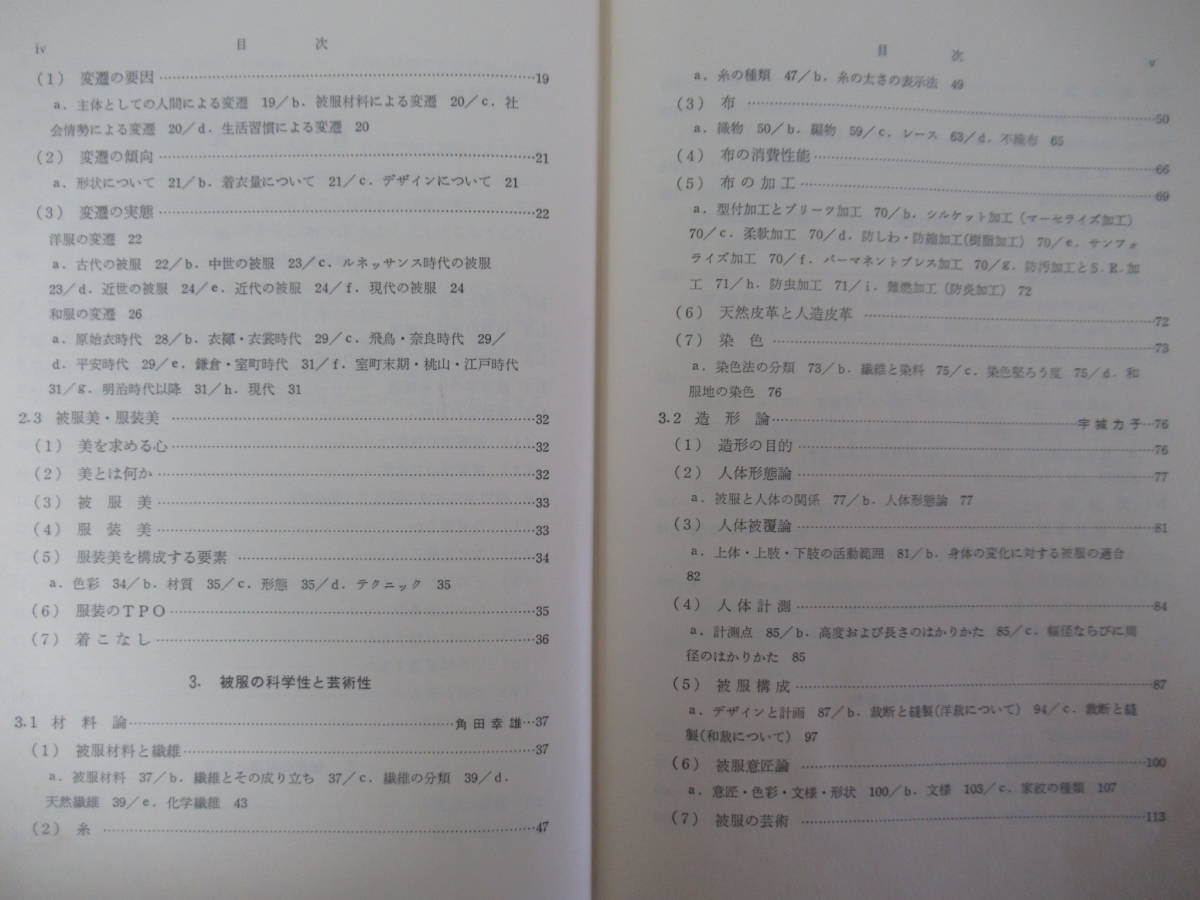 iv 目 次
(1) 変遷の要因 ……19
a. 主体としての人間による変遷 19/b. 被服材料による変遷 20/c. 社
会情勢による変遷 20/d. 生活習慣による変遷 20
(2) 変遷の傾向 ……21
a. 形状について 21/b. 着衣量について 21/c. デザインについて 21
(3) 変遷の実態 ……22
洋服の変遷 22
a. 古代の被服 22/b. 中世の被服 23/c. ルネッサンス時代の被服
23/d. 近世の被服 24/e. 近代の被服 24/f. 現代の被服 24
和服の変遷 26
a. 原始衣時代 28/b. 衣褌・衣裳時代 29/c. 飛鳥・奈良時代 29/
d. 平安時代 29/e. 鎌倉・室町時代 31/f. 室町末期・桃山・江戸時代
31/g. 明治時代以降 31/h. 現代 31
2.3 被服美・服装美 ……32
(1) 美を求める心 ……32
(2) 美とは何か ……32
(3) 被服美 ……33
(4) 服装美 ……33
(5) 服装美を構成する要素 ……34
a. 色彩 34/b. 材質 35/c. 形態 35/d. テクニック 35
(6) 服装のTPO ……35
(7) 着こなし ……36
3. 被服の科学性と芸術性
3.1 材料論 ……角田幸雄…37
(1) 被服材料と繊維 ……37
a. 被服材料 37/b. 繊維とその成り立ち 37/c. 繊維の分類 39/d.
天然繊維 39/e. 化学繊維 43
(2) 糸 ……47
目 次 v
a. 糸の種類 47/b. 糸の太さの表示法 49
(3) 布 ……50
a. 織物 50/b. 編物 59/c. レース 63/d. 不織布 65
(4) 布の消費性能 ……66
(5) 布の加工 ……69
a. 型付加工とプリーツ加工 70/b. シルケット加工(マーセライズ加工)
70/c. 柔軟加工 70/d. 防しわ・防縮加工(樹脂加工) 70/e. サンフォ
ライズ加工 70/f. パーマネントプレス加工 70/g. 防汚加工とS.R.加
工 71/h. 防虫加工 71/i. 難燃加工(防炎加工) 72
(6) 天然皮革と人造皮革 ……72
(7) 染色 ……73
a. 染色法の分類 73/b. 繊維と染料 75/c. 染色堅ろう度 75/d. 和
服地の染色 76
3.2 造形論 ……宇城カ子…76
(1) 造形の目的 ……76
(2) 人体形態論 ……77
a. 被服と人体の関係 77/b. 人体形態論 77
(3) 人体被覆論 ……81
a. 上体・上肢・下肢の活動範囲 81/b. 身体の変化に対する被服の適合
82
(4) 人体計測 ……84
a. 計測点 85/b. 高度および長さのはかりかた 85/c. 幅径ならびに周
径のはかりかた 85
(5) 被服構成 ……87
a. デザインと計画 87/b. 裁断と縫製(洋裁について) 94/c. 裁断と縫
製(和裁について) 97
(6) 被服意匠論 ……100
a. 意匠・色彩・文様・形状 100/b. 文様 103/c. 家紋の種類 107
(7) 被服の芸術 ……113